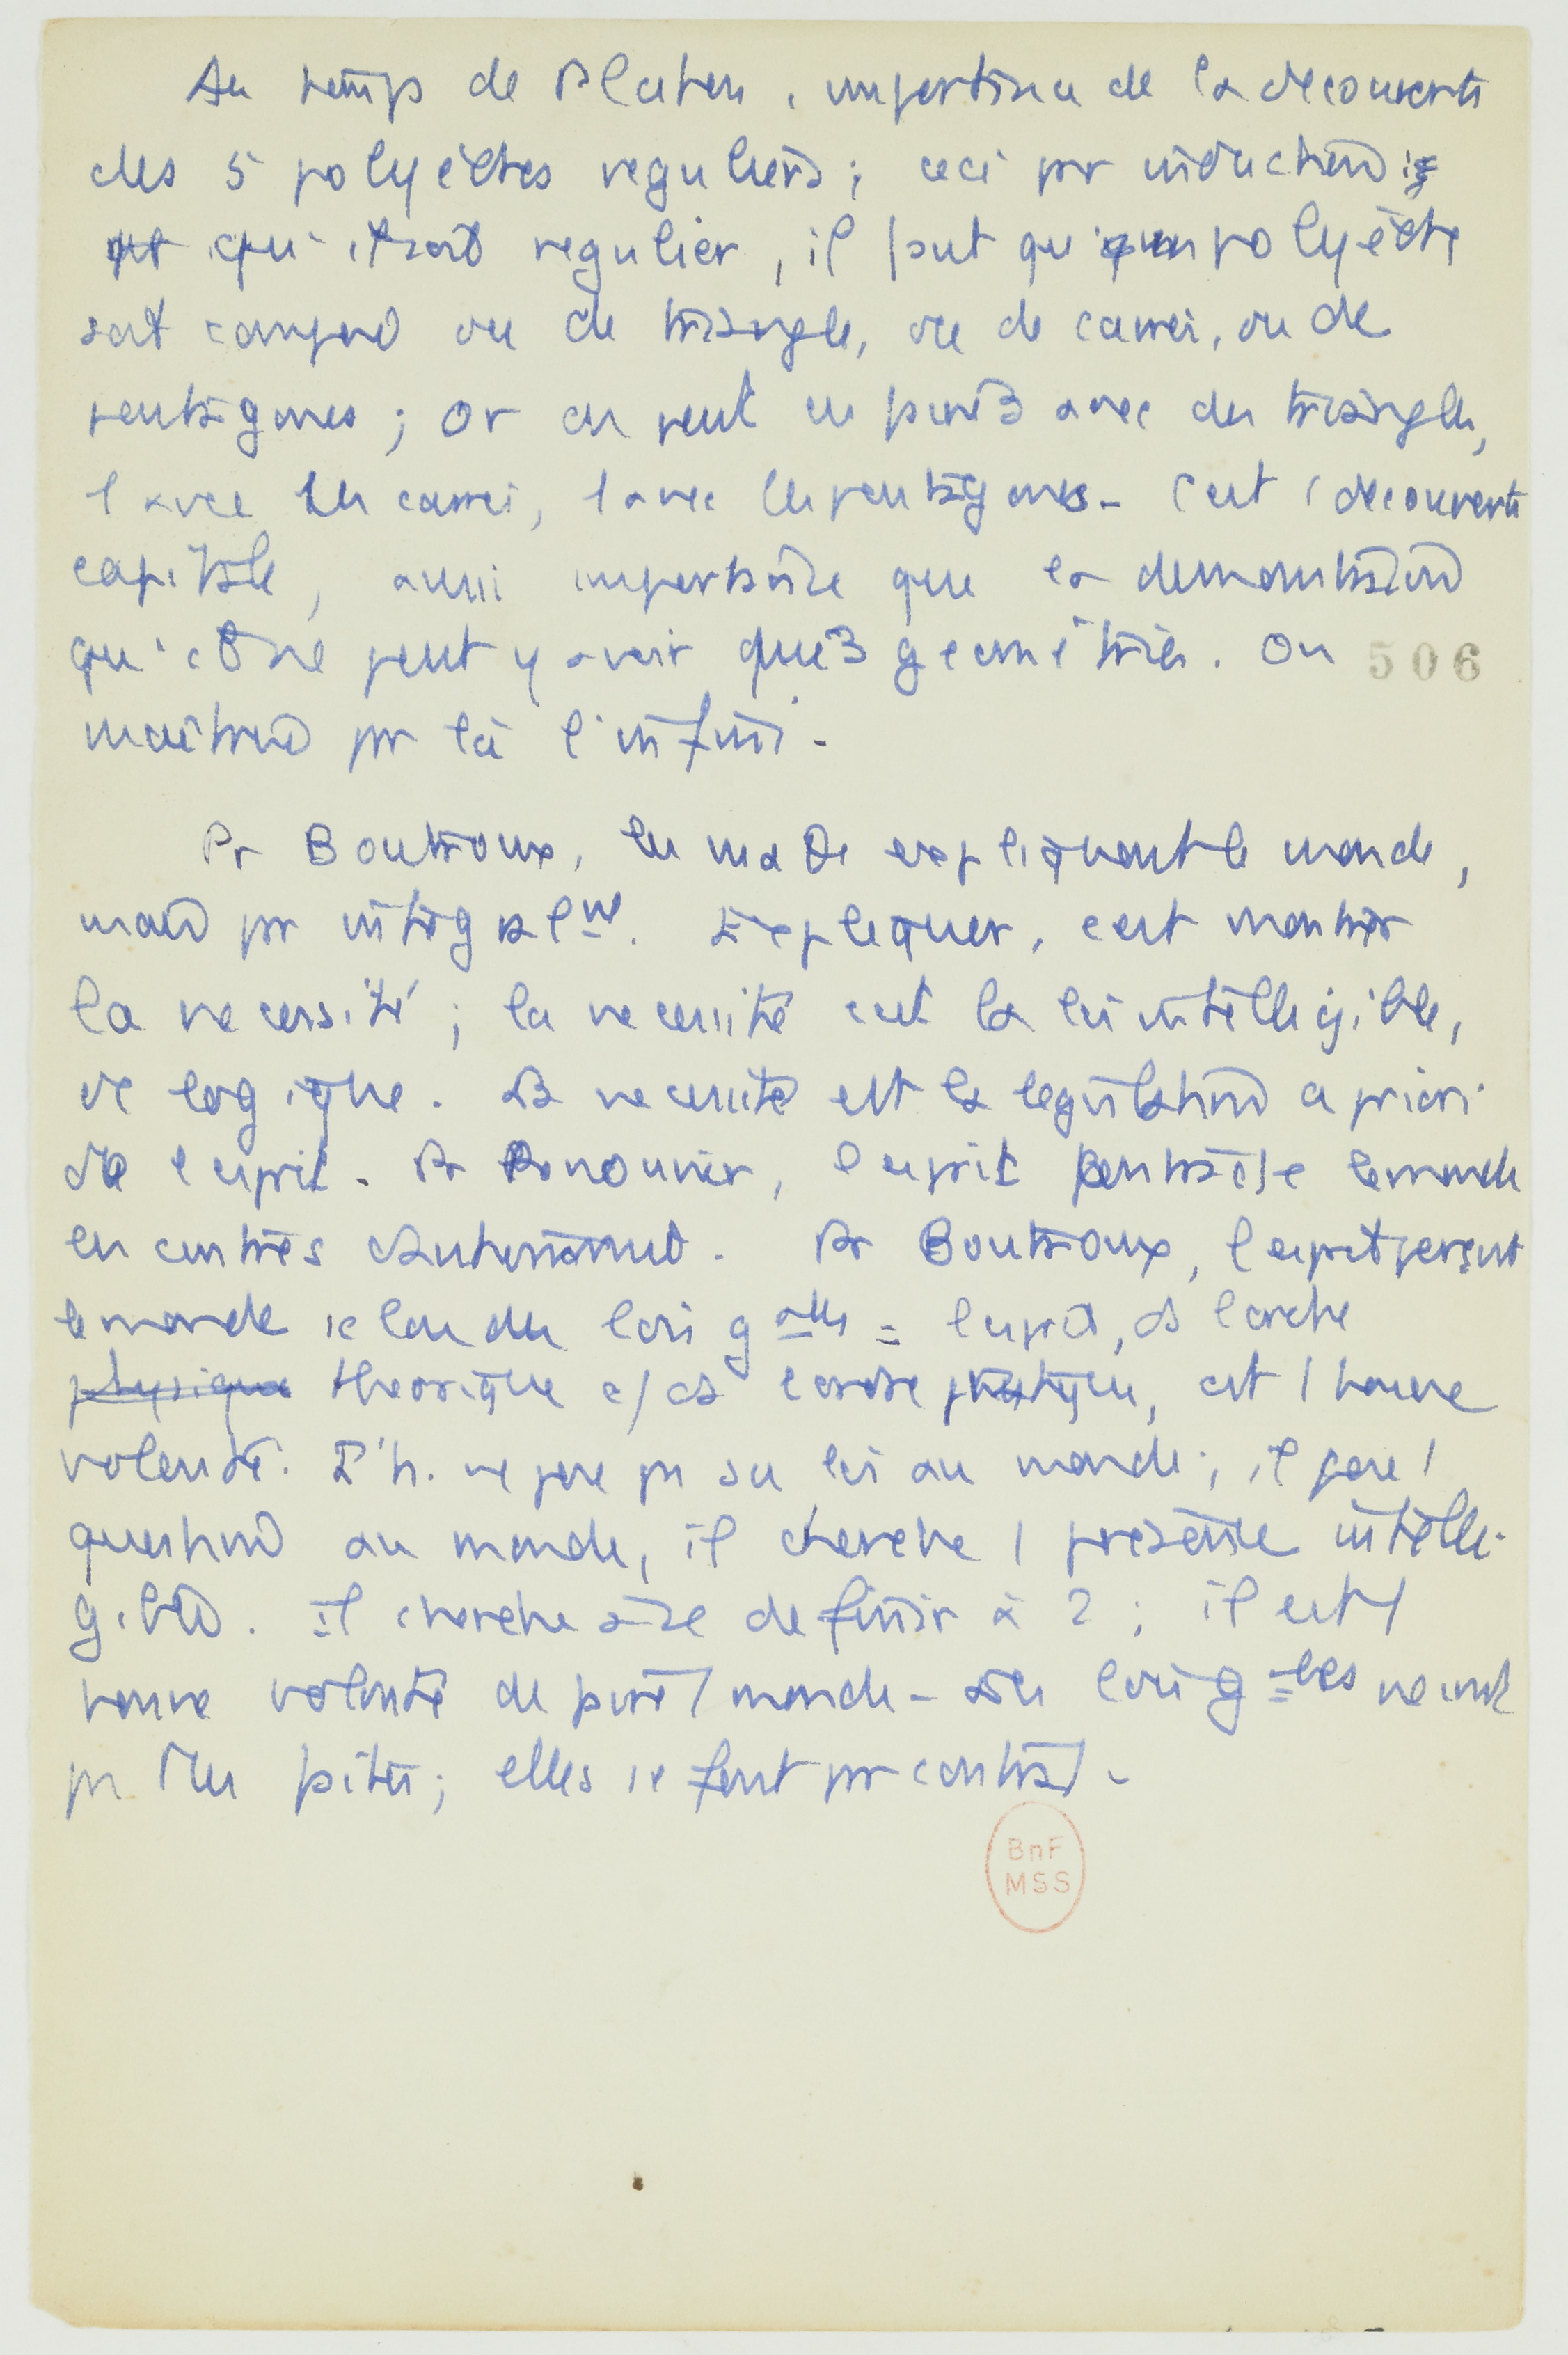 Au temps de Platon, importance de la découverte
des 5 polyèdres réguliers ; ceci par induction :
qu'il soit régulier, il faut qu'un polyèdre
soit composé ou de triangles, ou de carrés, ou de
pentagones ; or on peut en faire 3 avec des triangles,
1 avec les carrés, 1 avec les pentagones - C'est 1 découverte
capitale, aussi importante que la démonstration
qu'il ne peut y avoir que 3 géométries. On 506
maîtrise par là l'infini -
Pr Boutroux, les math expliquent le monde,
mais pas intégralnt. Expliquer, c'est montrer
la nécessité ; la nécessité c'est la loi intelligible,
et logique. La nécessité est la législation a priori
de l'esprit - Pr Renouvier, l'esprit le monde
en centres d'autonomie. Pr Boutroux, l'esprit perçoit
le monde selon des lois gales = l'esprit, ds l'ordre
théorique c/ ds l'ordre pratique, est 1 bonne
volonté. L'h. ne pose pas sa loi au monde ; il pose 1
question au monde, il cherche 1 présence intelli-
gible. Il cherche à se définir à 2 ; il est 1
bonne volonté de faire 1 monde - Les lois gales ne sont
pas faites ; elles se font par contrat -
BnF
MSS